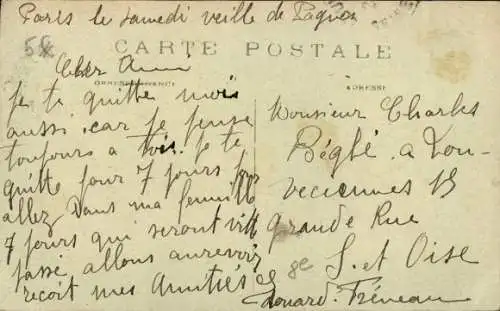 Paris le samedi veille de Paques
58
CARTE POSTALE
Cher Ami
CORRESPONDANCE
ADRESSE
Je te quitte mois
aussi car je pense
toujours a toi. Je te
quitte pour 7 jours pour
allez Dans ma famille
7 jours qui seront vite
passé allons aurevoir
reçoit mes Amitiés
Edouard. Fréneau
Monsieur Charles
Béglé. a Lou-
veciennes 15
grande Rue
S. et Oise